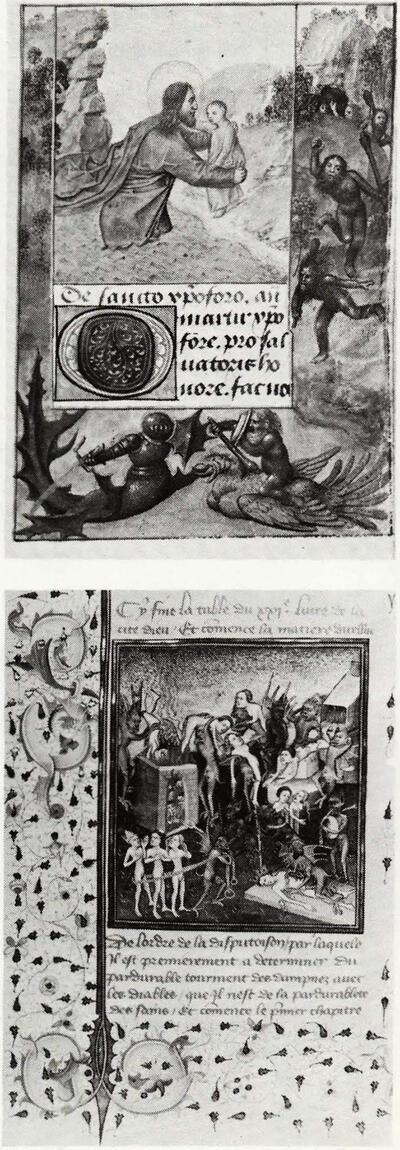 De sancto xpoforo. an
martir xpo
fore. pro sal
uatoris ho
nore. fac nos
Cy fine la table du xxi.e liure de la
cite dieu. Et comence la matiere du
De lordre de la disputoison par laquele
Il est premierement a determiner du
pardurable tourment des dampnez auec
les diables, que Il nest de la pardurablete
des sains, Et comence le pmier chapitre